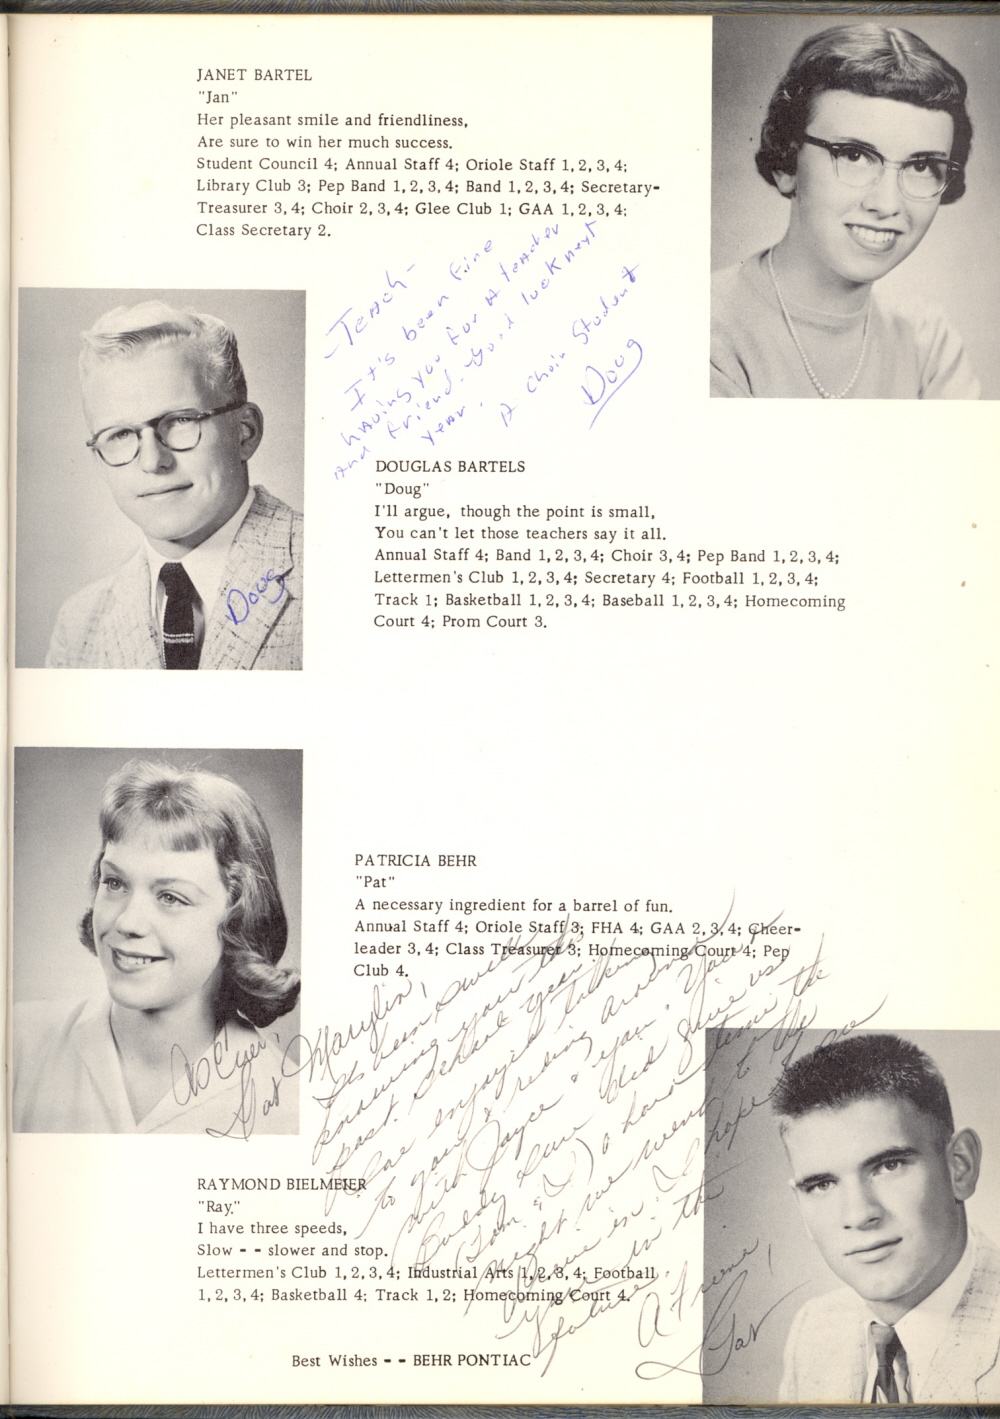 JANET BARTEL
"Jan"
Her pleasant smile and friendliness,
Are sure to win her much success.
Student Council 4; Annual Staff 4; Oriole Staff 1, 2, 3, 4;
Library Club 3; Pep Band 1, 2, 3, 4; Band 1, 2, 3, 4; Secretary-
Treasurer 3, 4; Choir 2, 3, 4; Glee Club 1; GAA 1, 2, 3, 4;
Class Secretary 2.
Teach-
It's been fine
having you for a teacher
and friend. Good luck next
year.
A Choir Student
Doug
Doug
DOUGLAS BARTELS
"Doug"
I'll argue, though the point is small,
You can't let those teachers say it all.
Annual Staff 4; Band 1, 2, 3, 4; Choir 3, 4; Pep Band 1, 2, 3, 4;
Lettermen's Club 1, 2, 3, 4; Secretary 4; Football 1, 2, 3, 4;
Track 1; Basketball 1, 2, 3, 4; Baseball 1, 2, 3, 4; Homecoming
Court 4; Prom Court 3.
PATRICIA BEHR
"Pat"
A necessary ingredient for a barrel of fun.
Annual Staff 4; Oriole Staff 3; FHA 4; GAA 2, 3, 4; Cheer-
leader 3, 4; Class Treasurer 3; Homecoming Court 4; Pep
Club 4.
As Ever,
Pat
Marylin,
It's been swell
knowing you this
past school year.
enjoyed talking
to you & riding around
with Joyce & you. You,
did give us
a hard time the
night we went to the
in. I hope
in the
future.
A Friend,
Pat
RAYMOND BIELMEIER
"Ray."
I have three speeds,
Slow - - slower and stop.
Lettermen's Club 1, 2, 3, 4; Industrial Arts 1, 2, 3, 4; Football
1, 2, 3, 4; Basketball 4; Track 1, 2; Homecoming Court 4.
Best Wishes - - BEHR PONTIAC